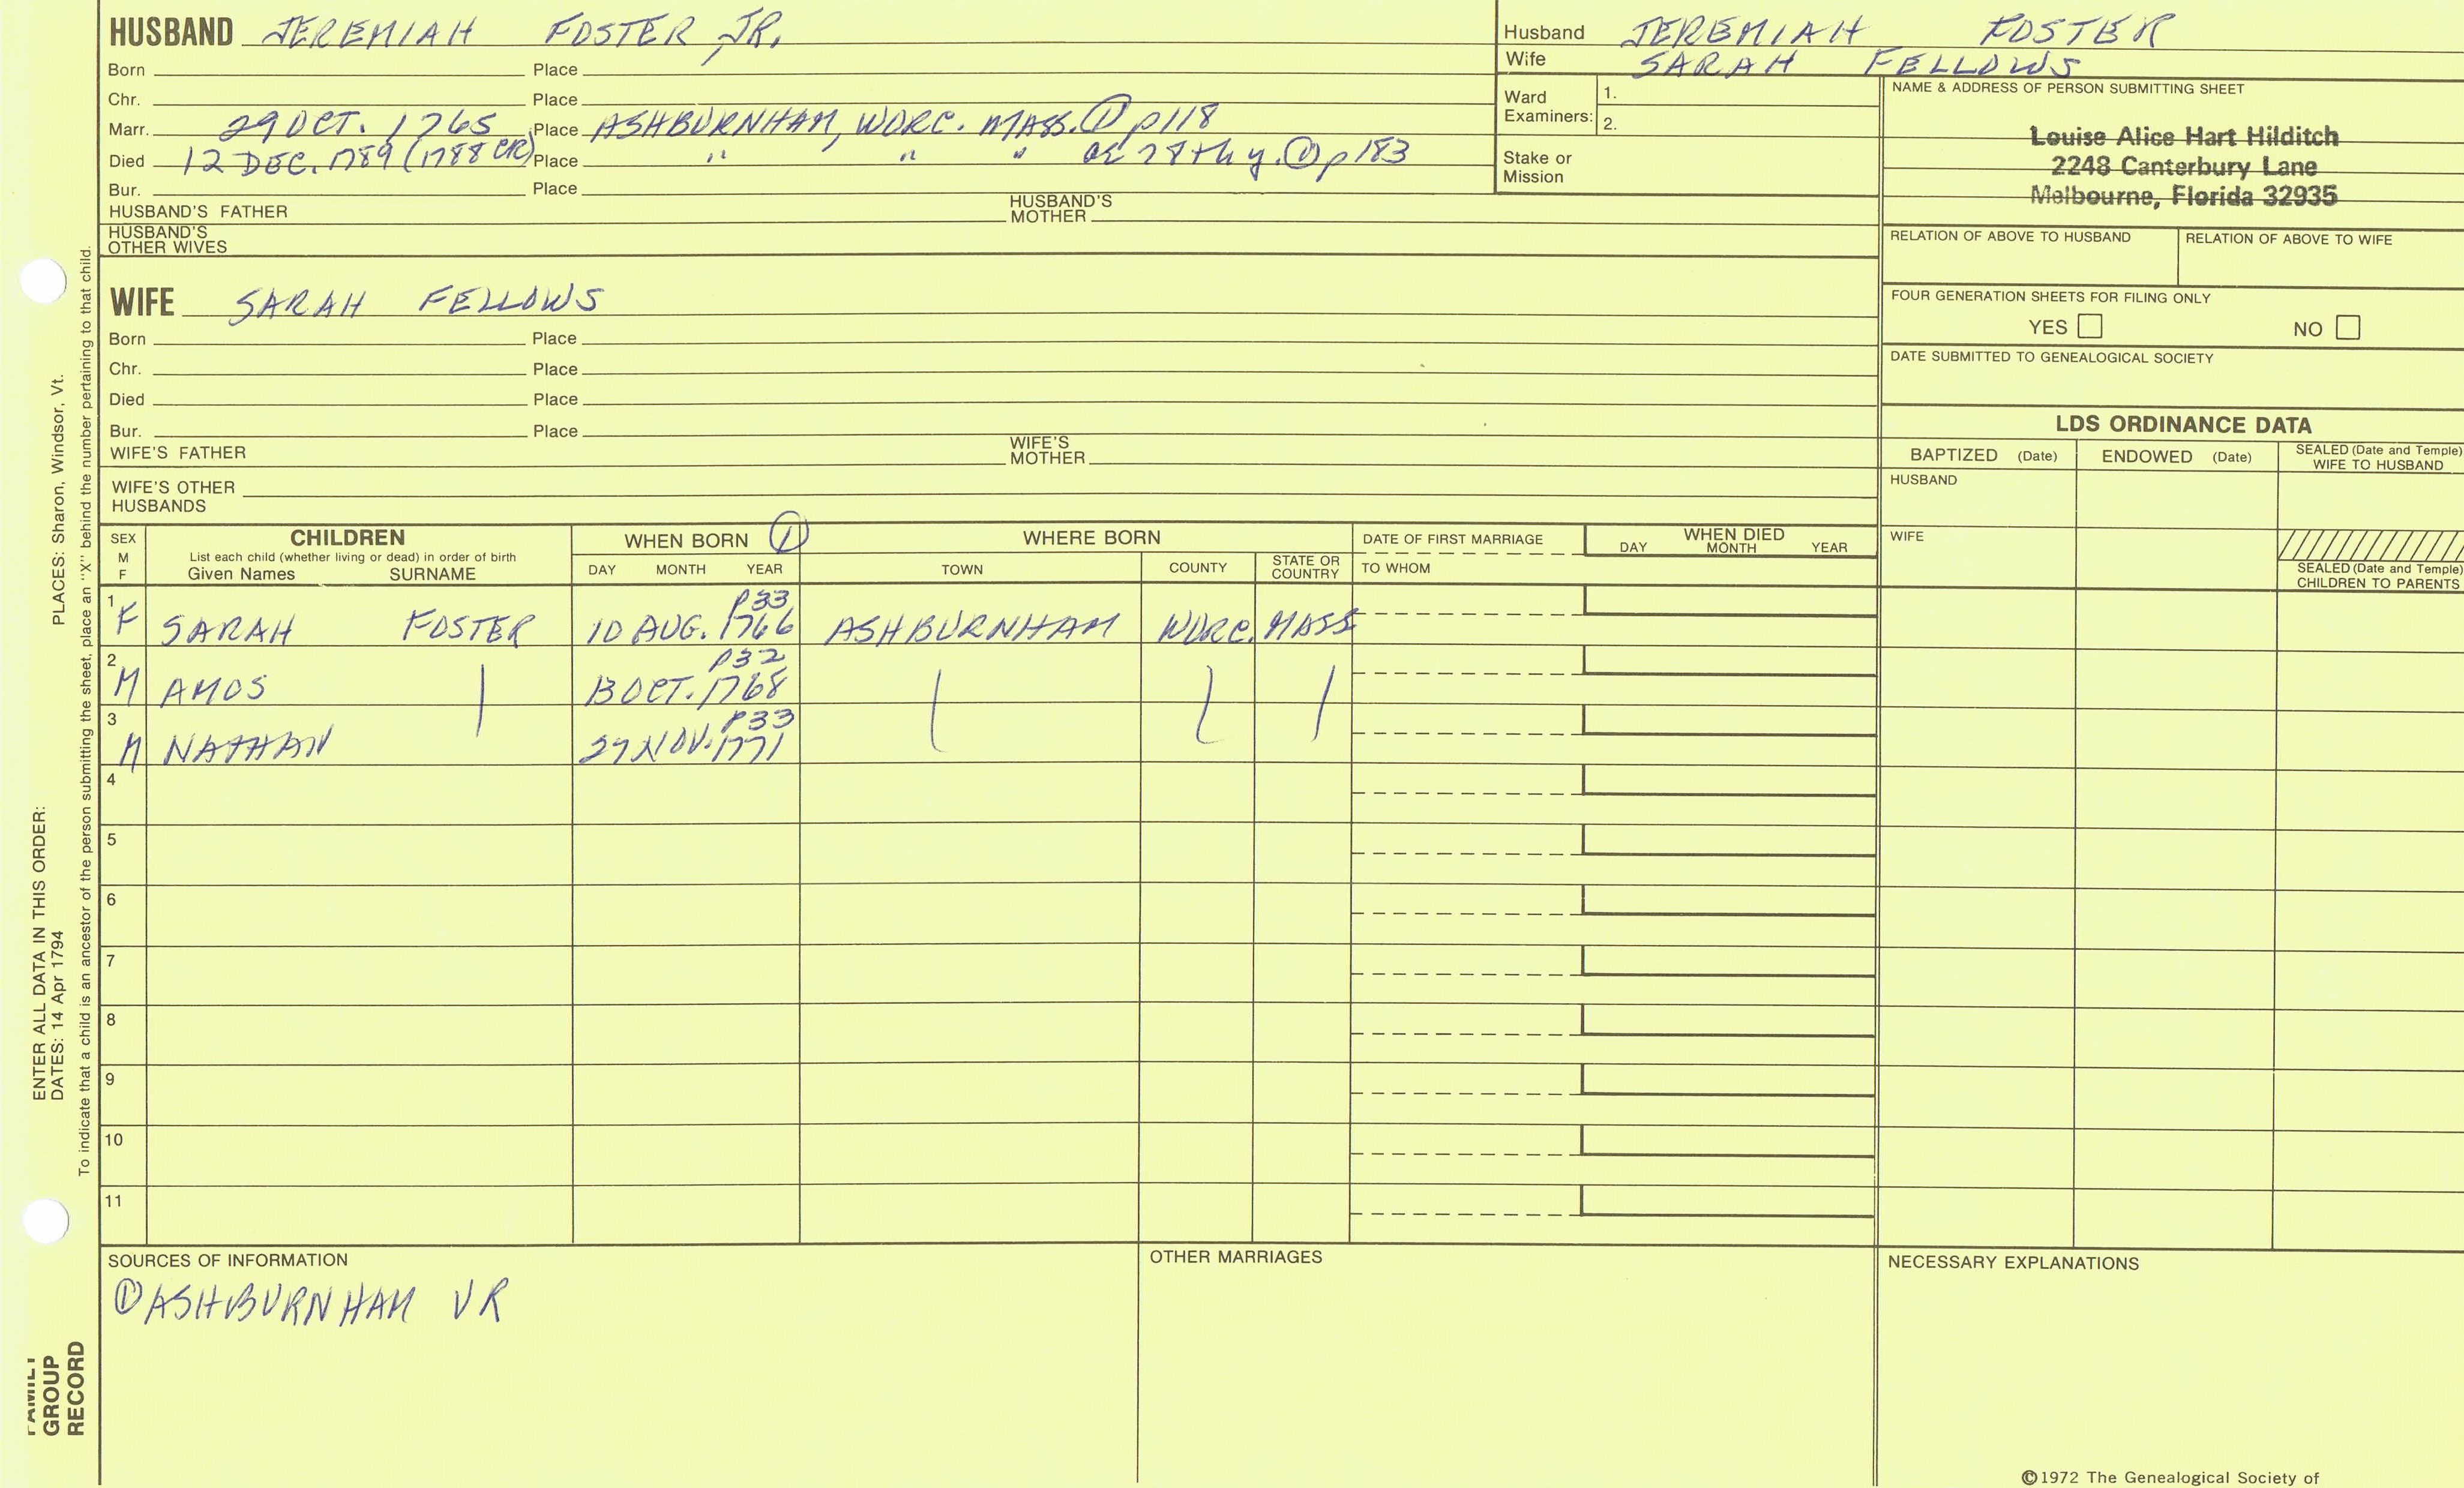 HUSBAND JEREMIAH FOSTER JR.
Born Place
Chr. Place
Marr. 29 OCT. 1765 Place ASHBURNHAM, WORC. MASS. ① p118
Died 12 DEC. 1789 (1788 CR) Place " " " ae 78th y. ① p183
Bur. Place
HUSBAND'S FATHER HUSBAND'S MOTHER
HUSBAND'S OTHER WIVES
Husband JEREMIAH FOSTER
Wife SARAH FELLOWS
Ward Examiners: 1.
2.
Stake or Mission
NAME & ADDRESS OF PERSON SUBMITTING SHEET
Louise Alice Hart Hilditch
2248 Canterbury Lane
Melbourne, Florida 32935
RELATION OF ABOVE TO HUSBAND RELATION OF ABOVE TO WIFE
FOUR GENERATION SHEETS FOR FILING ONLY
YES NO
DATE SUBMITTED TO GENEALOGICAL SOCIETY
WIFE SARAH FELLOWS
Born Place
Chr. Place
Died Place
Bur. Place
WIFE'S FATHER WIFE'S MOTHER
WIFE'S OTHER HUSBANDS
LDS ORDINANCE DATA
BAPTIZED (Date) ENDOWED (Date) SEALED (Date and Temple) WIFE TO HUSBAND
HUSBAND
WIFE
SEALED (Date and Temple) CHILDREN TO PARENTS
SEX M F
CHILDREN
List each child (whether living or dead) in order of birth
Given Names SURNAME
WHEN BORN ①
DAY MONTH YEAR
WHERE BORN
TOWN COUNTY STATE OR COUNTRY
DATE OF FIRST MARRIAGE
TO WHOM
WHEN DIED
DAY MONTH YEAR
p33
1 F SARAH FOSTER 10 AUG. 1766 ASHBURNHAM WORC. MASS
p32
2 M AMOS 13 OCT. 1768
p33
3 M NATHAN 27 NOV. 1771
4
5
6
7
8
9
10
11
SOURCES OF INFORMATION
① ASHBURNHAM VR
OTHER MARRIAGES
NECESSARY EXPLANATIONS
©1972 The Genealogical Society of
ENTER ALL DATA IN THIS ORDER:
DATES: 14 Apr 1794 PLACES: Sharon, Windsor, Vt.
To indicate that a child is an ancestor of the person submitting the sheet, place an "X" behind the number pertaining to that child.
FAMILY
GROUP
RECORD